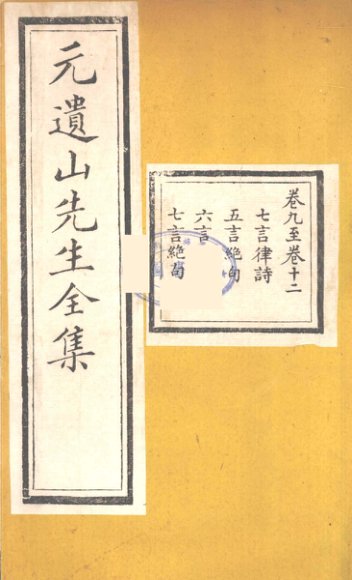 元遺山先生全集
卷九至卷十二
七言律詩
五言絶句
六言
七言絶句